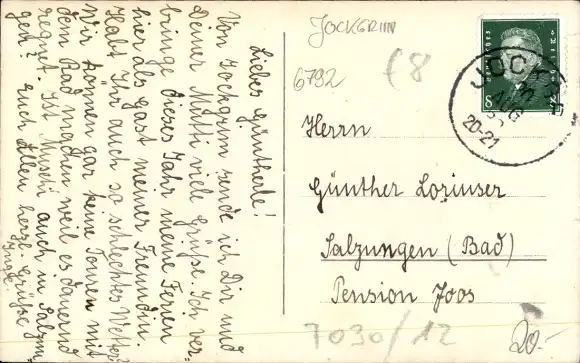 Lieber Güntherle!
Von Jockrim sende ich Dir und
Deiner Mutti viele Grüße. Ich ver-
bringe dieses Jahr meine Ferien
hier als Gast meiner Freundin.
Habt Ihr auch so schlechtes Wetter?
Wir können gar keine Touren mit
dem Rad machen weil es dauernd
regnet. Ist auch in Salzun
gen? Euch Allen herzl. Grüße
Inge
JOCKGRIM
6792
£8
8
JOCKGRIM
20-21
Herrn
Günther Lorinser
Salzungen (Bad)
Pension Joos
7030/12
20.-